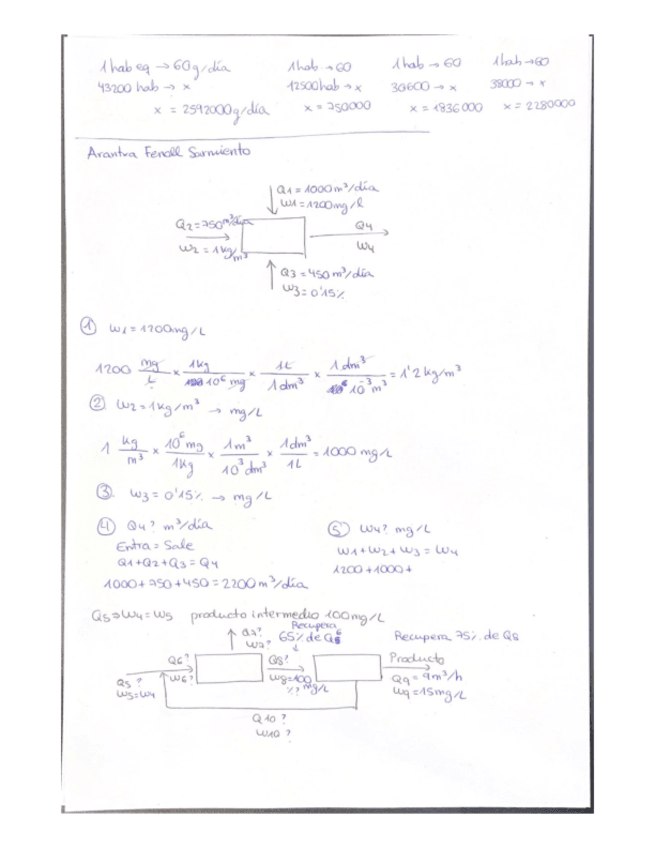 1 hab eq → 60 g/día   1 hab → 60   1 hab → 60   1 hab → 60
43200 hab → x   12500 hab → x   30600 → x   38000 → x
x = 2592000 g/día   x = 750000   x = 1836000   x = 2280000
Arantva Fenoll Sarmiento
Q1 = 1000 m³/día
W1 = 1200 mg/l
Q2 = 750 m³/día
W2 = 1 kg/m³
Q4
W4
Q3 = 450 m³/día
W3 = 0'15%
① W1 = 1200 mg/L
1200 mg/L × 1 kg/10⁶ mg × 1 L/1 dm³ × 1 dm³/10⁻³ m³ = 1'2 kg/m³
② W2 = 1 kg/m³ → mg/L
1 kg/m³ × 10⁶ mg/1 kg × 1 m³/10³ dm³ × 1 dm³/1 L = 1000 mg/L
③ W3 = 0'15% → mg/L
④ Q4? m³/día
Entra = Sale
Q1 + Q2 + Q3 = Q4
1000 + 750 + 450 = 2200 m³/día
⑤ W4? mg/L
W1 + W2 + W3 = W4
1200 + 1000 +
Q5 ⇒ W4 = W5 producto intermedio 100 mg/L
Q7?
W7?
Recupera
65% de
Recupera 75% de Q8
Q5?
W5 = W4
Q6?
W6?
Q8?
W8 = 100
%? mg/L
Producto
Q9 = 9 m³/h
W9 = 15 mg/L
Q10?
W10?